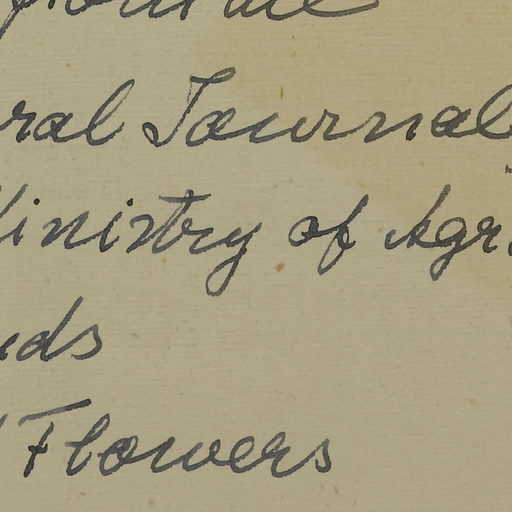 ral Journal
inistry of Agr.
ds
Flowers